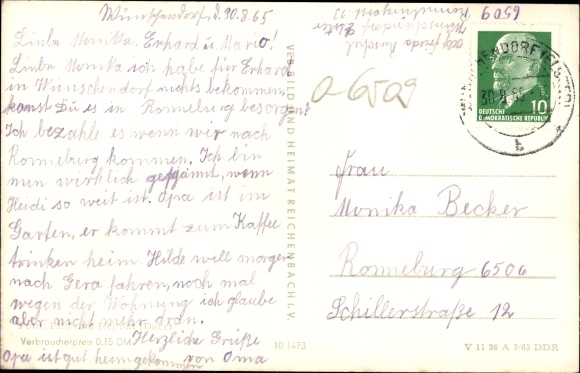 Wünschendorf d. 30.8.65
Liebe Monika, Erhard u. Mario!
Liebe Monika ich habe für Erhard
in Wünschendorf nichts bekommen
kanst Du es in Ronneburg besorgen?
Ich bezahle es wenn wir nach
Ronneburg kommen. Ich bin
nun wirklich gespannt, wenn
Heidi so weit ist. Opa ist im
Garten, er kommt zum Kaffee
trinken heim Hilde will morgen
nach Gera fahren, noch mal
wegen der Wohnung ich glaube
aber nicht mehr dran.
Verbraucherpreis 0.15 DM
Herzliche Grüße
Opa ist gut heimgekommen von Oma
10 1473
VEB BILD UND HEIMAT REICHENBACH I. V.
Abs. Frieda
Wünschendorf Elster
6509
o-6509
10
DEUTSCHE
DEMOKRATISCHE REPUBLIK
b
Frau
Monika Becker
Ronneburg 6506
Schillerstraße 12
V 11 28 A 3/63 DDR